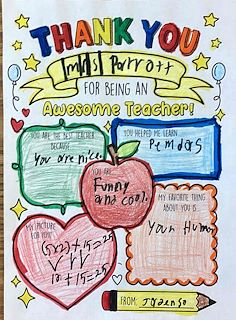 THANK YOU
Mrs Parrott
FOR BEING AN
Awesome Teacher!
YOU ARE THE BEST TEACHER
BECAUSE
You are nice.
YOU HELPED ME LEARN...
Pemdas
YOU ARE
Funny
and cool.
MY FAVORITE THING
ABOUT YOU IS
Your Humor
MY PICTURE
FOR YOU!
(5x2)+15=25
10+15=25
FROM: